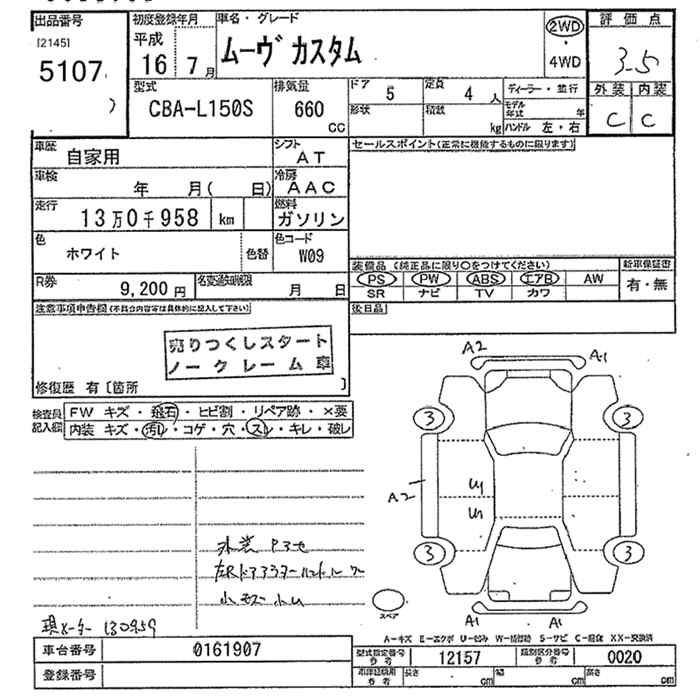 出品番号
[2145]
5107
初度登録年月
平成
16 7月
車名・グレード
ムーヴ カスタム
2WD
・
4WD
評価点
3.5
外装 内装
C C
型式
CBA-L150S
排気量
660
CC
ドア 5
定員 4人
形状
積載 kg
ディーラー・並行
モデル年式 年
ハンドル 左・右
車歴
自家用
シフト
AT
セールスポイント(正常に機能するものに限ります)
車検
年 月( 日)
冷房
AAC
走行
13万0千958 km
燃料
ガソリン
色
ホワイト
色替
色コード
W09
装備品 (純正品に限り○をつけてください)
PS PW ABS エアB AW
SR ナビ TV カワ
新車保証書
有・無
R券
9,200円
名変通知期限
月 日
注意事項申告欄(不具合内容等は具体的に記入して下さい)
後日品
売りつくしスタート
ノークレーム車
修復歴 有〔箇所 〕
検査員記入欄
FW キズ・飛石・ヒビ割・リペア跡・×要
内装 キズ・汚レ・コゲ・穴・スレ・キレ・破レ
A2
A1
3
3
A2
U1
3
3
A1
A1
スペア
現メーター 130959
A-キズ E-エクボ U-凹み W-補修跡 S-サビ C-腐食 XX-交換済
車台番号
0161907
型式指定番号
参考
12157
類別区分番号
参考
0020
登録番号
車庫証明用
参考
長さ cm
幅 cm
高さ cm